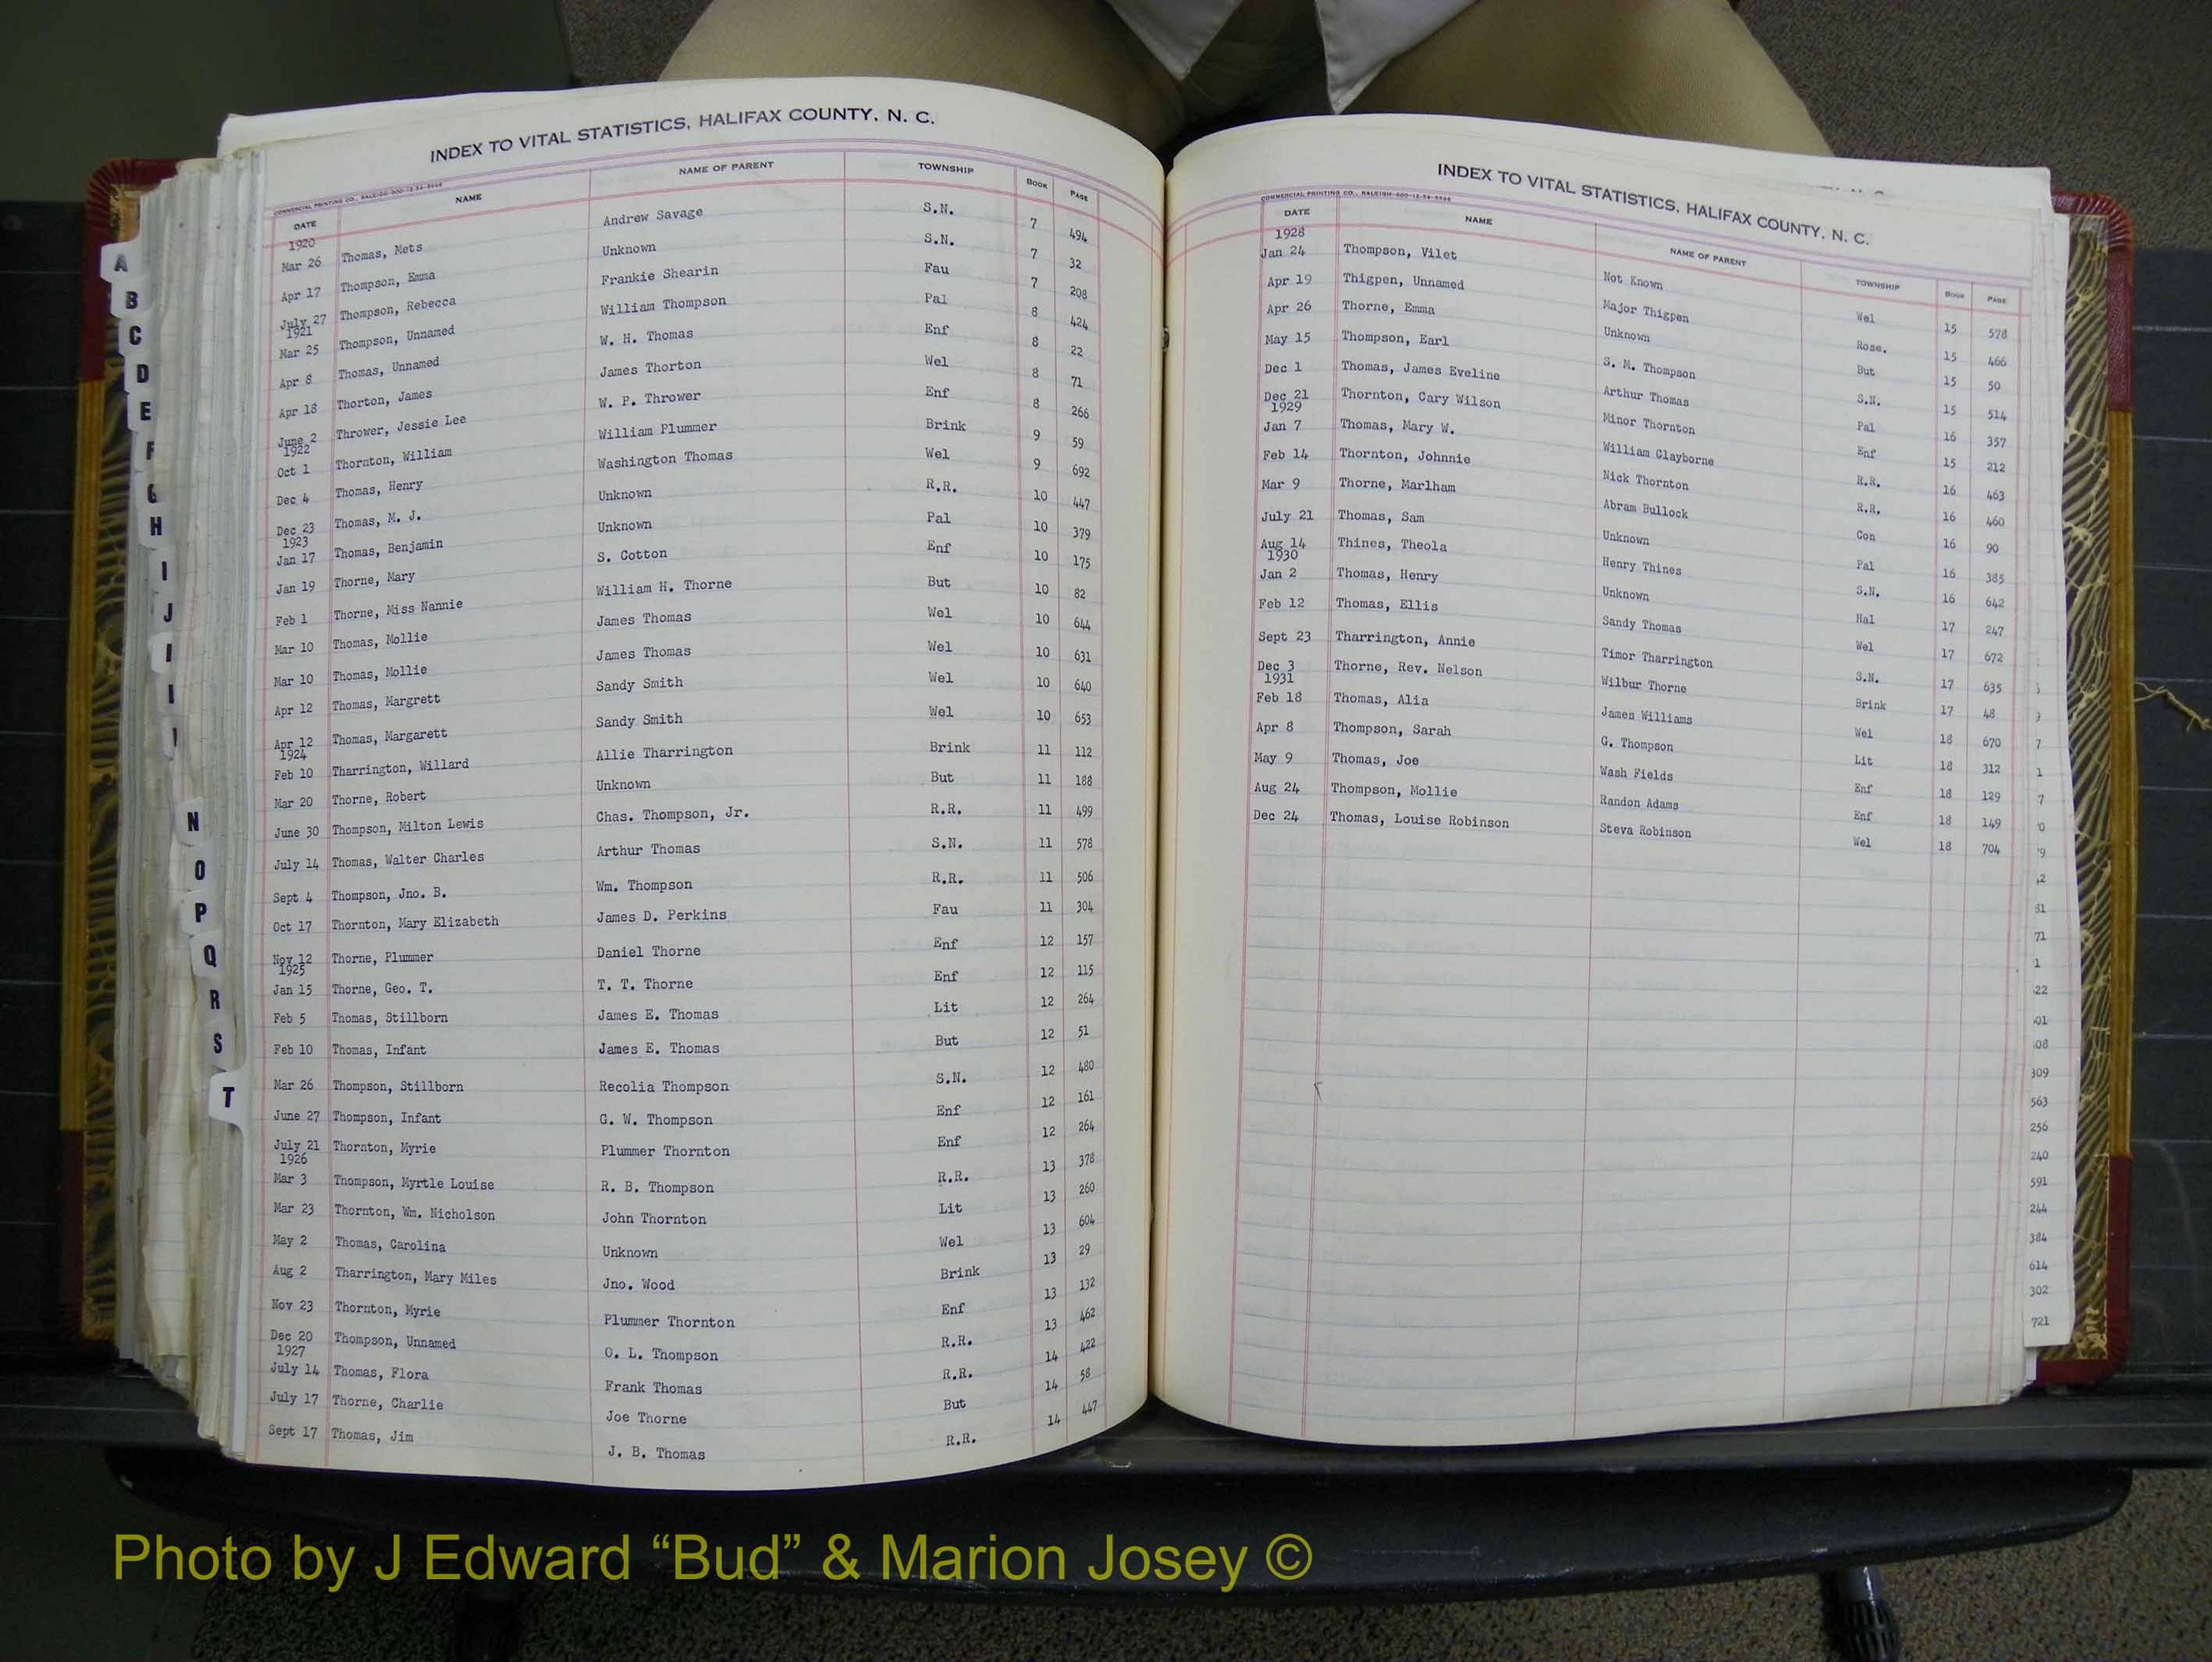 INDEX TO VITAL STATISTICS, HALIFAX COUNTY, N. C.
COMMERCIAL PRINTING CO., RALEIGH-800-12-34-5496
DATE NAME NAME OF PARENT TOWNSHIP BOOK PAGE
1920
Mar 26 Thomas, Mets Andrew Savage S.N. 7 494
Apr 17 Thompson, Emma Unknown S.N. 7 32
July 27 Thompson, Rebecca Frankie Shearin Fau 7 208
1921
Mar 25 Thompson, Unnamed William Thompson Pal 8 424
Apr 8 Thomas, Unnamed W. H. Thomas Enf 8 22
Apr 18 Thorton, James James Thorton Wel 8 71
June 2 Thrower, Jessie Lee W. P. Thrower Enf 8 266
1922
Oct 1 Thornton, William William Plummer Brink 9 59
Dec 4 Thomas, Henry Washington Thomas Wel 9 692
Dec 23 Thomas, M. J. Unknown R.R. 10 447
1923
Jan 17 Thomas, Benjamin Unknown Pal 10 379
Jan 19 Thorne, Mary S. Cotton Enf 10 175
Feb 1 Thorne, Miss Nannie William H. Thorne But 10 82
Mar 10 Thomas, Mollie James Thomas Wel 10 644
Mar 10 Thomas, Mollie James Thomas Wel 10 631
Apr 12 Thomas, Margrett Sandy Smith Wel 10 640
Apr 12 Thomas, Margarett Sandy Smith Wel 10 653
1924
Feb 10 Tharrington, Willard Allie Tharrington Brink 11 112
Mar 20 Thorne, Robert Unknown But 11 188
June 30 Thompson, Milton Lewis Chas. Thompson, Jr. R.R. 11 499
July 14 Thomas, Walter Charles Arthur Thomas S.N. 11 578
Sept 4 Thompson, Jno. B. Wm. Thompson R.R. 11 506
Oct 17 Thornton, Mary Elizabeth James D. Perkins Fau 11 304
Nov 12 Thorne, Plummer Daniel Thorne Enf 12 157
1925
Jan 15 Thorne, Geo. T. T. T. Thorne Enf 12 115
Feb 5 Thomas, Stillborn James E. Thomas Lit 12 264
Feb 10 Thomas, Infant James E. Thomas But 12 51
Mar 26 Thompson, Stillborn Recolia Thompson S.N. 12 480
June 27 Thompson, Infant G. W. Thompson Enf 12 161
July 21 Thornton, Myrie Plummer Thornton Enf 12 264
1926
Mar 3 Thompson, Myrtle Louise R. B. Thompson R.R. 13 378
Mar 23 Thornton, Wm. Nicholson John Thornton Lit 13 260
May 2 Thomas, Carolina Unknown Wel 13 604
Aug 2 Tharrington, Mary Miles Jno. Wood Brink 13 29
Nov 23 Thornton, Myrie Plummer Thornton Enf 13 132
Dec 20 Thompson, Unnamed O. L. Thompson R.R. 13 462
1927
July 14 Thomas, Flora Frank Thomas R.R. 14 422
July 17 Thorne, Charlie Joe Thorne But 14 58
Sept 17 Thomas, Jim J. B. Thomas R.R. 14 447
A
B
C
D
E
F
G
H
I
J
N
O
P
Q
R
S
T
INDEX TO VITAL STATISTICS, HALIFAX COUNTY, N. C.
COMMERCIAL PRINTING CO., RALEIGH-800-12-34-5496
DATE NAME NAME OF PARENT TOWNSHIP BOOK PAGE
1928
Jan 24 Thompson, Vilet Not Known Wel 15 578
Apr 19 Thigpen, Unnamed Major Thigpen Rose. 15 466
Apr 26 Thorne, Emma Unknown But 15 50
May 15 Thompson, Earl S. M. Thompson S.N. 15 514
Dec 1 Thomas, James Eveline Arthur Thomas Pal 16 357
Dec 21 Thornton, Cary Wilson Minor Thornton Enf 15 212
1929
Jan 7 Thomas, Mary W. William Clayborne R.R. 16 463
Feb 14 Thornton, Johnnie Nick Thornton R.R. 16 460
Mar 9 Thorne, Marlham Abram Bullock Con 16 90
July 21 Thomas, Sam Unknown Pal 16 385
Aug 14 Thines, Theola Henry Thines S.N. 16 642
1930
Jan 2 Thomas, Henry Unknown Hal 17 247
Feb 12 Thomas, Ellis Sandy Thomas Wel 17 672
Sept 23 Tharrington, Annie Timor Tharrington S.N. 17 635
Dec 3 Thorne, Rev. Nelson Wilbur Thorne Brink 17 48
1931
Feb 18 Thomas, Alia James Williams Wel 18 670
Apr 8 Thompson, Sarah G. Thompson Lit 18 312
May 9 Thomas, Joe Wash Fields Enf 18 129
Aug 24 Thompson, Mollie Randon Adams Enf 18 149
Dec 24 Thomas, Louise Robinson Steva Robinson Wel 18 704
7
1
7
71
1
309
563
256
240
591
244
384
614
302
721
Photo by J Edward “Bud” & Marion Josey ©